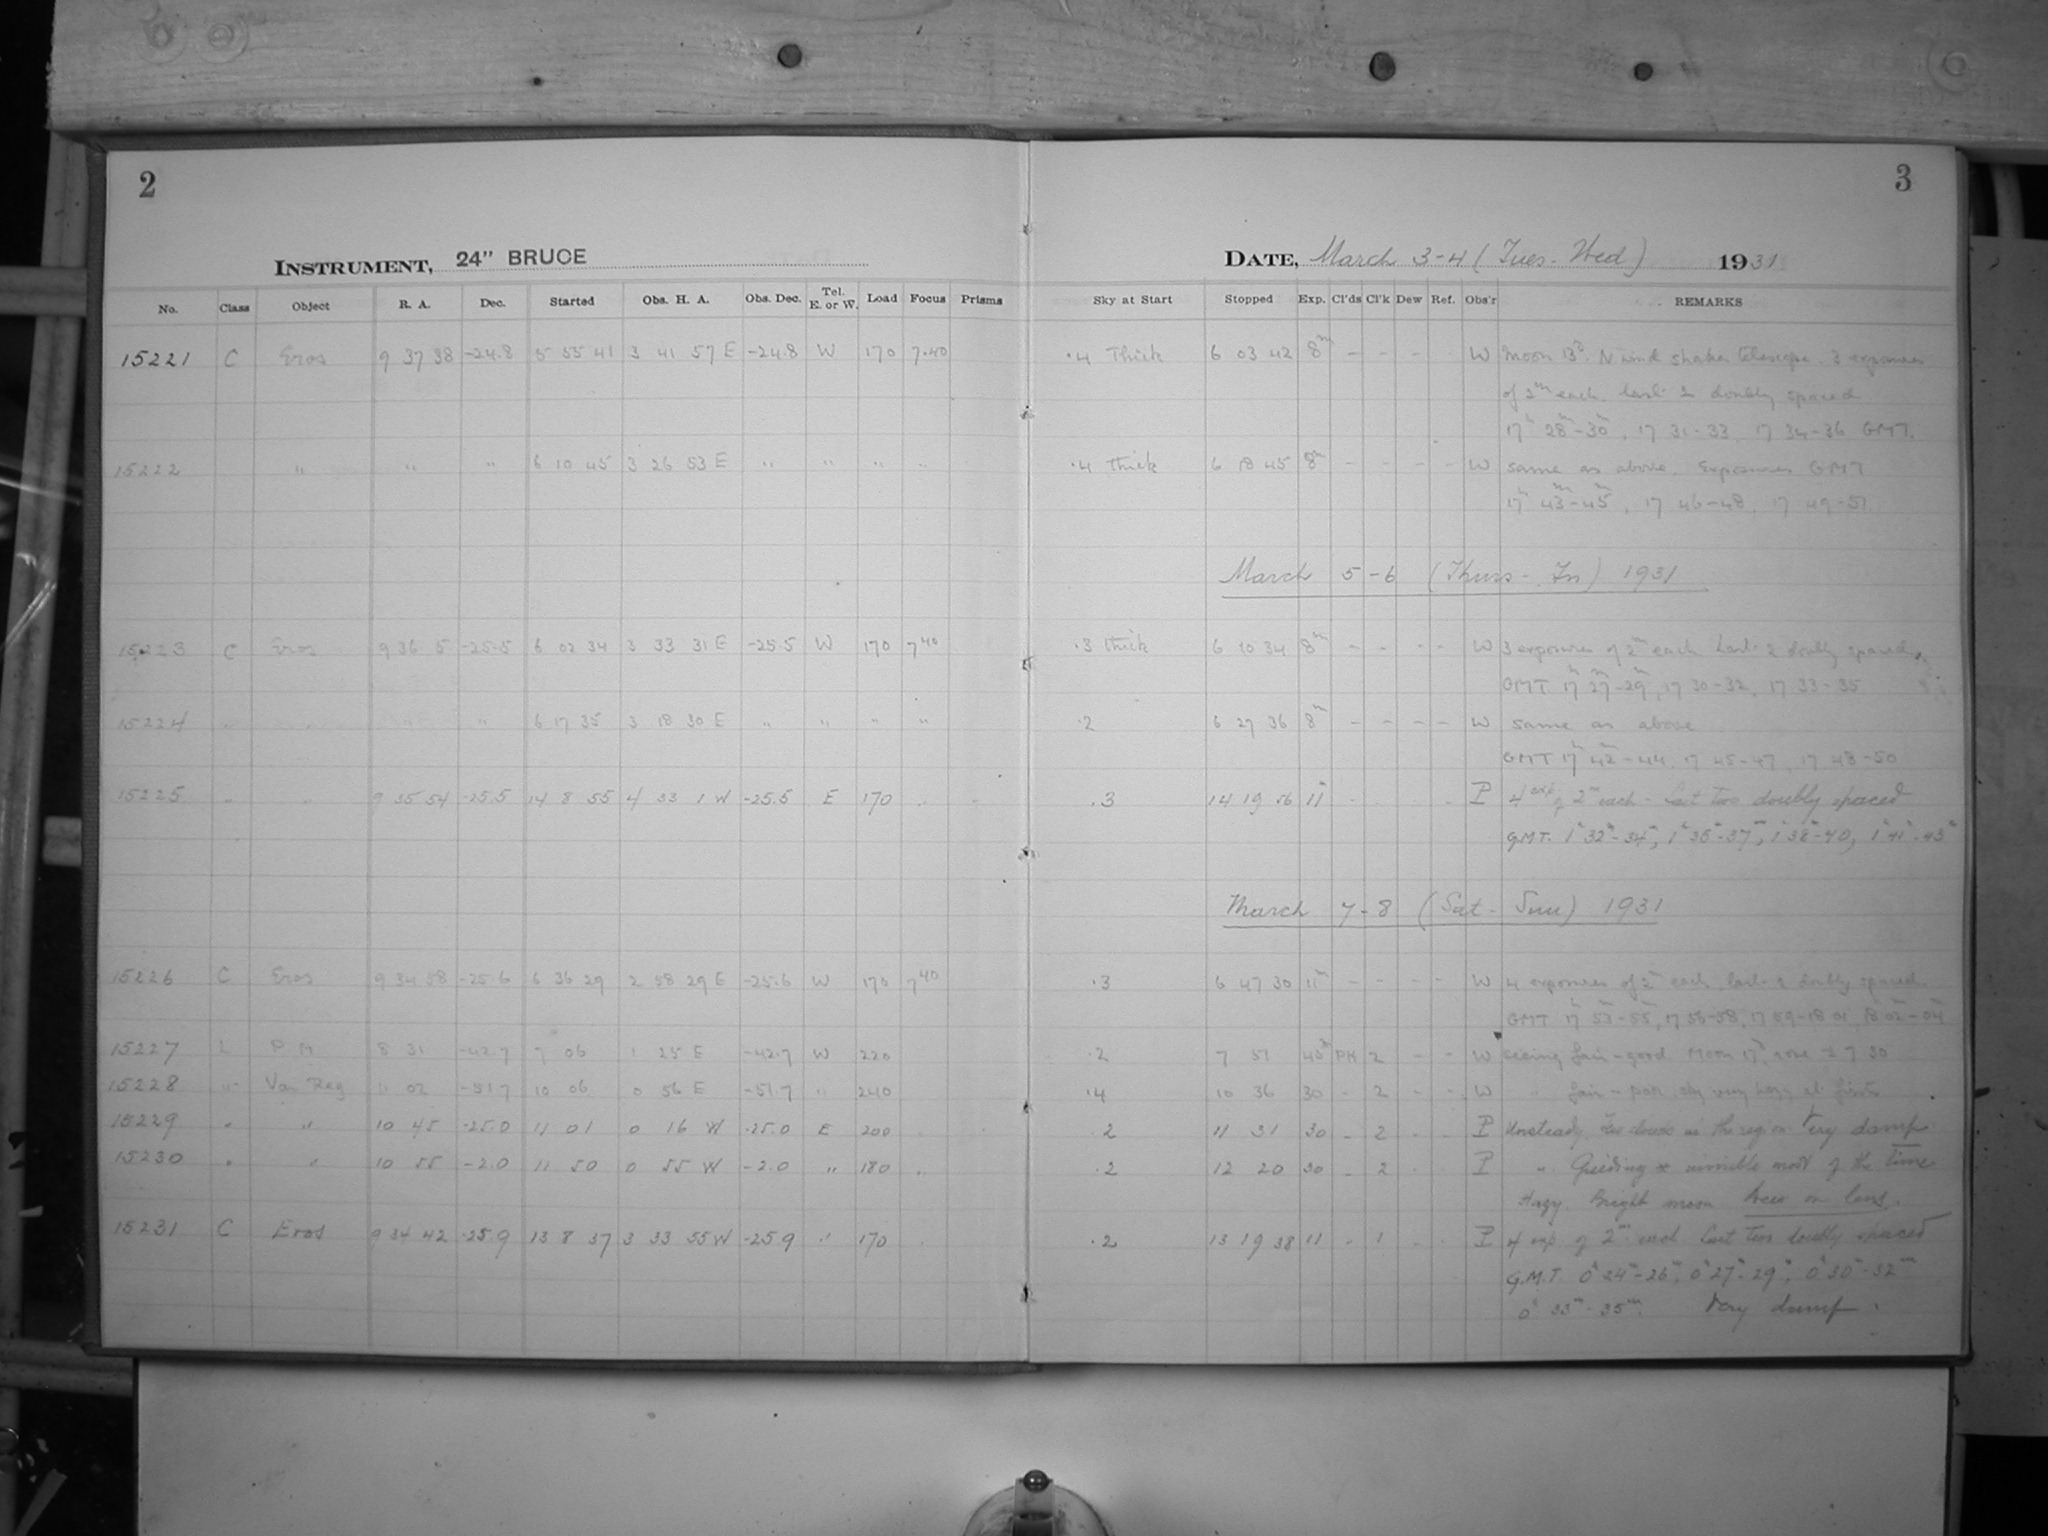 2
3
INSTRUMENT, 24" BRUCE
DATE, March 3-4 (Tues-Wed) 1931
No. Class Object R. A. Dec. Started Obs. H. A. Obs. Dec. Tel. E. or W. Load Focus Prisms Sky at Start Stopped Exp. Cl'ds Cl'k Dew Ref. Obs'r REMARKS
15221 C Eros 9 37 38 -24.8 5 55 41 3 41 57 E -24.8 W 170 7.40 .4 Thick 6 03 42 8m - - - W Moon 13d. N wind shakes telescope. 3 exposures
of 2m each last 2 doubly spaced
17h 28m-30m, 17 31-33, 17 34-36 GMT.
15222 " " " 6 10 45 3 26 53 E " " " " .4 thick 6 18 45 8m - - - - W same as above. Exposures GMT
17h 43m-45m, 17 46-48, 17 49-51
March 5-6 (Thurs-Fri) 1931
15223 C Eros 9 36 5 -25.5 6 02 34 3 33 31 E -25.5 W 170 7 40 .3 thick 6 10 34 8m - - - - W 3 exposures of 2m each last 2 doubly spaced
GMT 17h 27m-29m, 17 30-32, 17 33-35
15224 " " " 6 17 35 3 18 30 E " " " " .2 6 27 36 8m - - - - W same as above
GMT 17h 42m-44, 17 45-47, 17 48-50
15225 " " 9 35 54 -25.5 14 8 55 4 33 1 W -25.5 E 170 " .3 14 19 56 11m P 4 exp of 2m each - last two doubly spaced
GMT. 1h 32m-34m, 1h 35m-37m, 1h 38m-40, 1h 41m-43m
March 7-8 (Sat-Sun) 1931
15226 C Eros 9 34 58 -25.6 6 36 29 2 58 29 E -25.6 W 170 7 40 .3 6 47 30 11m - - - - W 4 exposures of 2m each last 2 doubly spaced
GMT 17h 53m-55m, 17 56-58, 17 59-18 01, 18 02-04
15227 L P M 8 31 -42.7 7 06 1 25 E -42.7 W 220 .2 7 51 45m PH 2 - - W seeing fair-good Moon 17d rose ± 7 30
15228 " Var Reg 11 02 -51.7 10 06 0 56 E -51.7 " 240 .4 10 36 30 - 2 - - W " fair-poor, sky very hazy at first
15229 " " 10 45 -25.0 11 01 0 16 W -25.0 E 200 .2 11 31 30 - 2 P Unsteady. Few clouds in the region Very damp
15230 " " 10 55 -2.0 11 50 0 55 W -2.0 " 180 " .2 12 20 30 - 2 P " Guiding * invisible most of the time
Hazy Bright moon Dew on lens.
15231 C Eros 9 34 42 -25.9 13 8 37 3 33 55 W -25.9 " 170 .2 13 19 38 11 - 1 P 4 exp of 2m each last two doubly spaced
G.M.T. 0h 24m-26m, 0h 27m-29m, 0h 30m-32m
0h 33m-35m. Very damp.